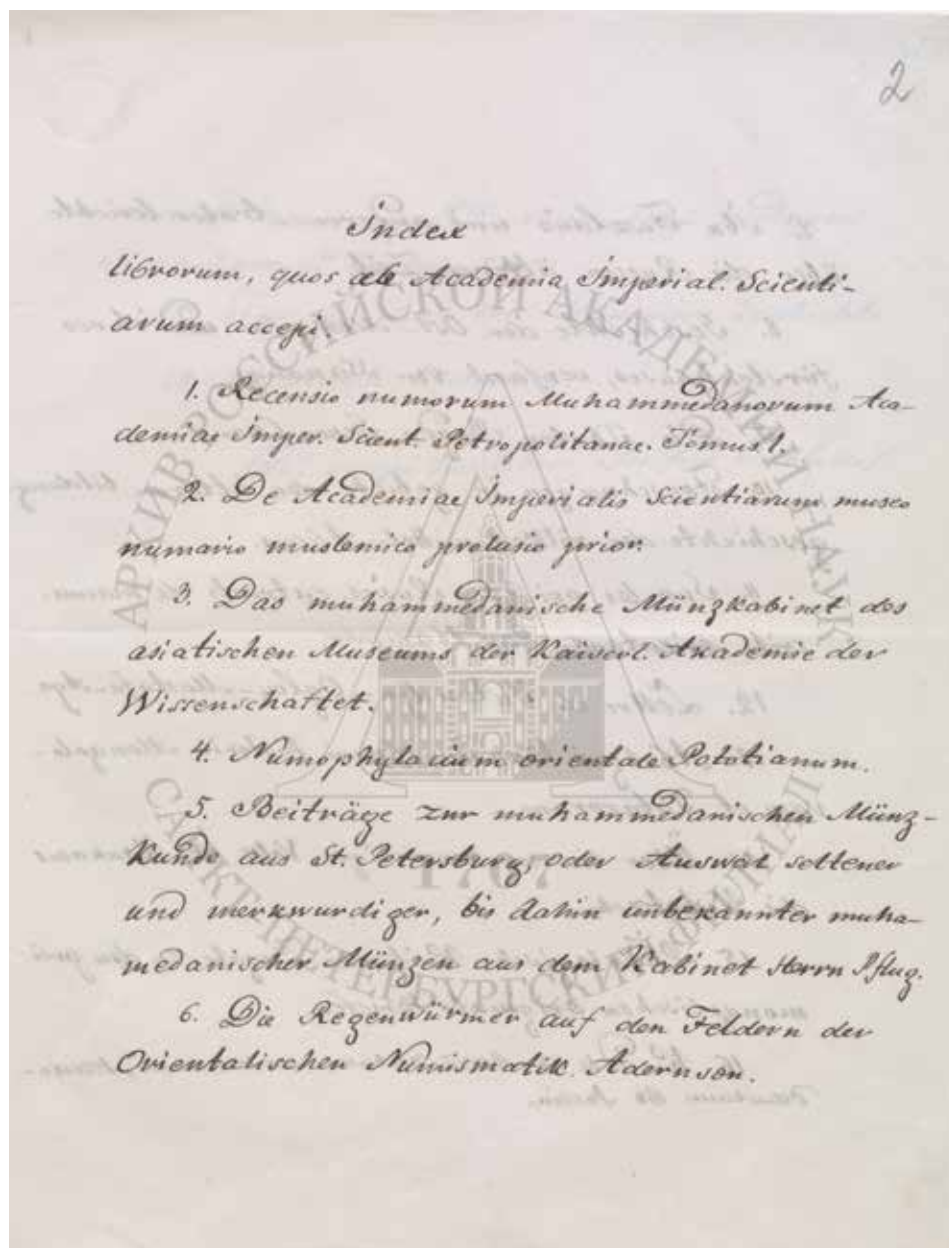 2
Index
librorum, quos ab Academia Imperial. Scienti-
arum accepi.
1. Recensio numorum Muhammedanorum Aca-
demiae Imper. Scient. Petropolitanae. Tomus I.
2. De Academiae Imperialis Scientiarum museo
numario muslemico prolusio prior.
3. Das muhammedanische Münzkabinet des
asiatischen Museums der Kaiserl. Akademie der
Wissenschaftet.
4. Numophylacium orientale Pototianum.
5. Beiträge zur muhammedanischen Münz-
kunde aus St. Petersburg, oder Auswal seltener
und merkwurdiger, bis dahin unbekannter muha-
medanischer Münzen aus dem Kabinet Herrn Pflug.
6. Die Regenwürmer auf den Feldern der
Orientalischen Numismatik.
АРХИВ РОССИЙСКОЙ АКАДЕМИИ НАУК
1767
САНКТ-ПЕТЕРБУРГСКИЙ ФИЛИАЛ